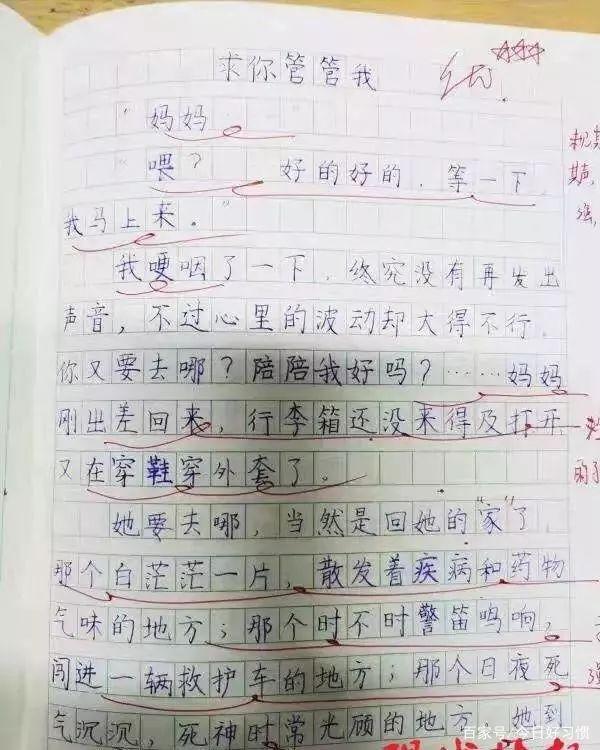 求你管管我
优
"妈妈
"喂？ 好的好的，等一下
我马上来。"
我哽咽了一下，终究没有再发出
声音，不过心里的波动却大得不行，
你又要去哪？陪陪我好吗？……妈妈
刚出差回来，行李箱还没来得及打开
又在穿鞋穿外套了。
她要去哪，当然是回她的"家"了
那个白茫茫一片，散发着疾病和药物
气味的地方；那个时不时警笛鸣响，
闯进一辆救护车的地方；那个日夜死
气沉沉，死神时常光顾的地方 她到
百家号/今日好习惯